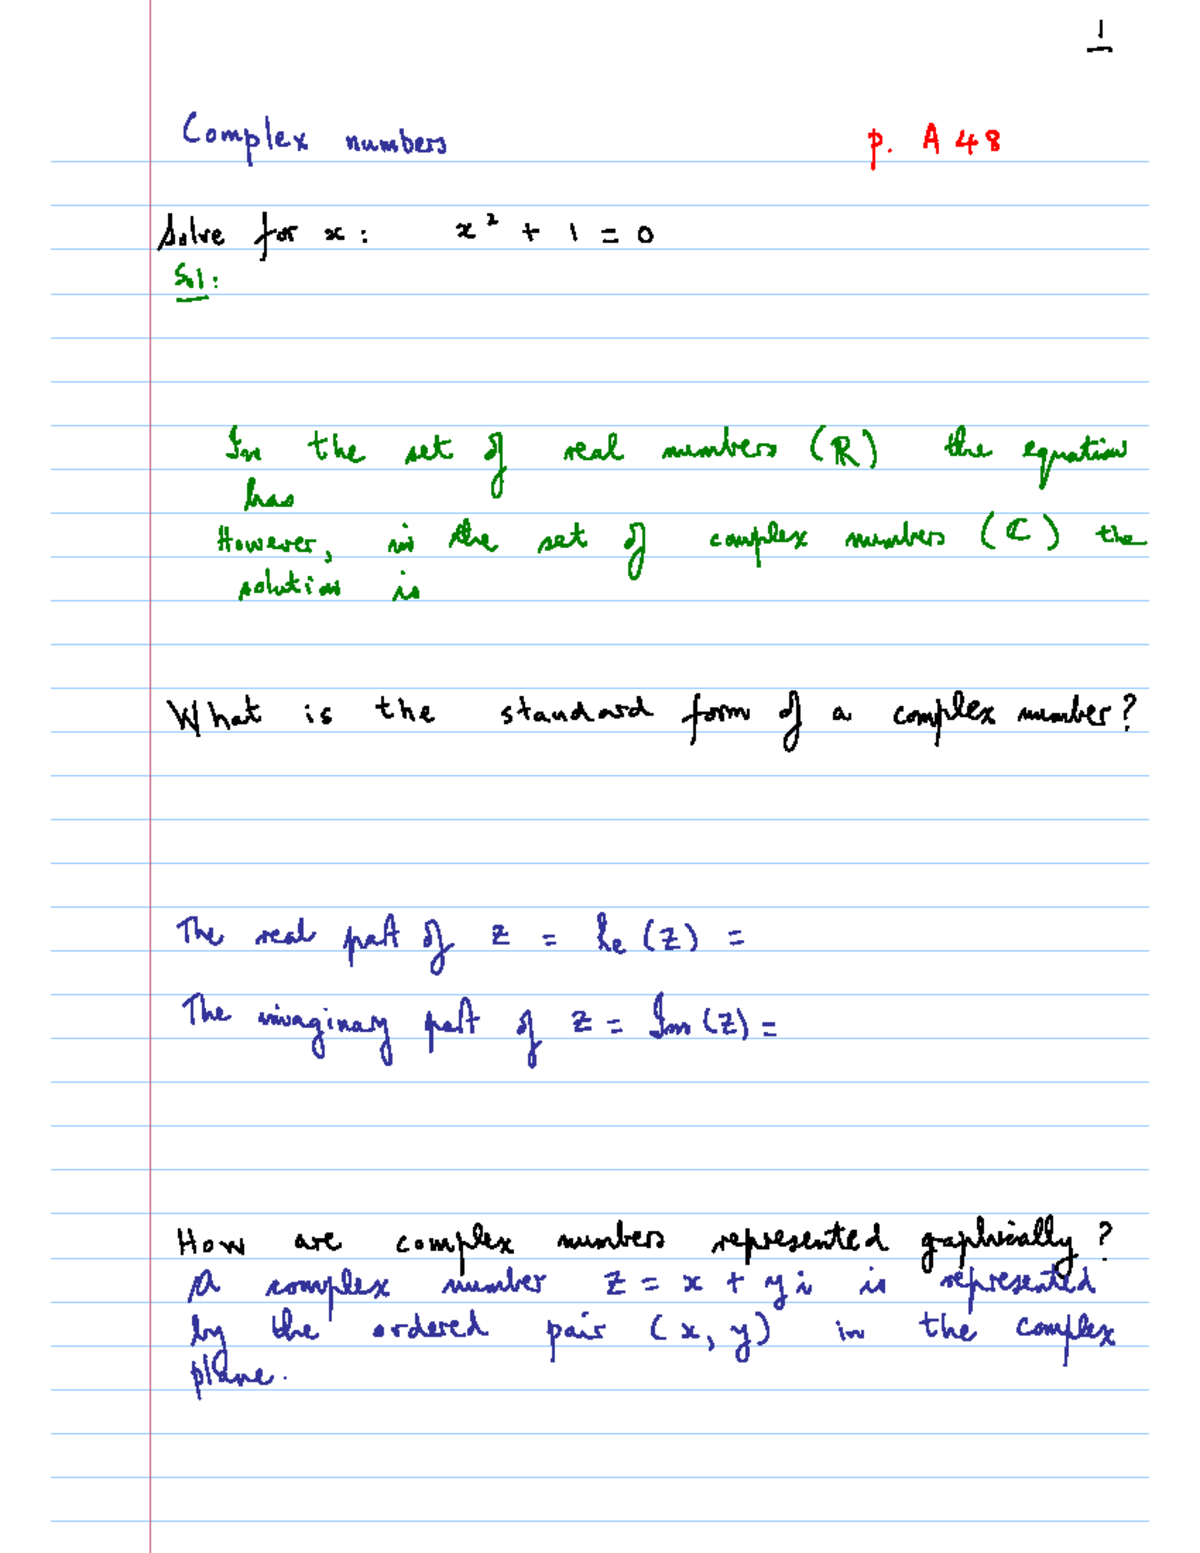 1
Complex numbers p. A 48
Solve for x: x² + 1 = 0
Sol:
In the set of real numbers (ℝ) the equation
has
However, in the set of complex numbers (ℂ) the
solution is
What is the standard form of a complex number?
The real part of z = Re (z) =
The imaginary part of z = Im (z) =
How are complex numbers represented graphically?
A complex number z = x + yi is represented
by the ordered pair (x, y) in the complex
plane.